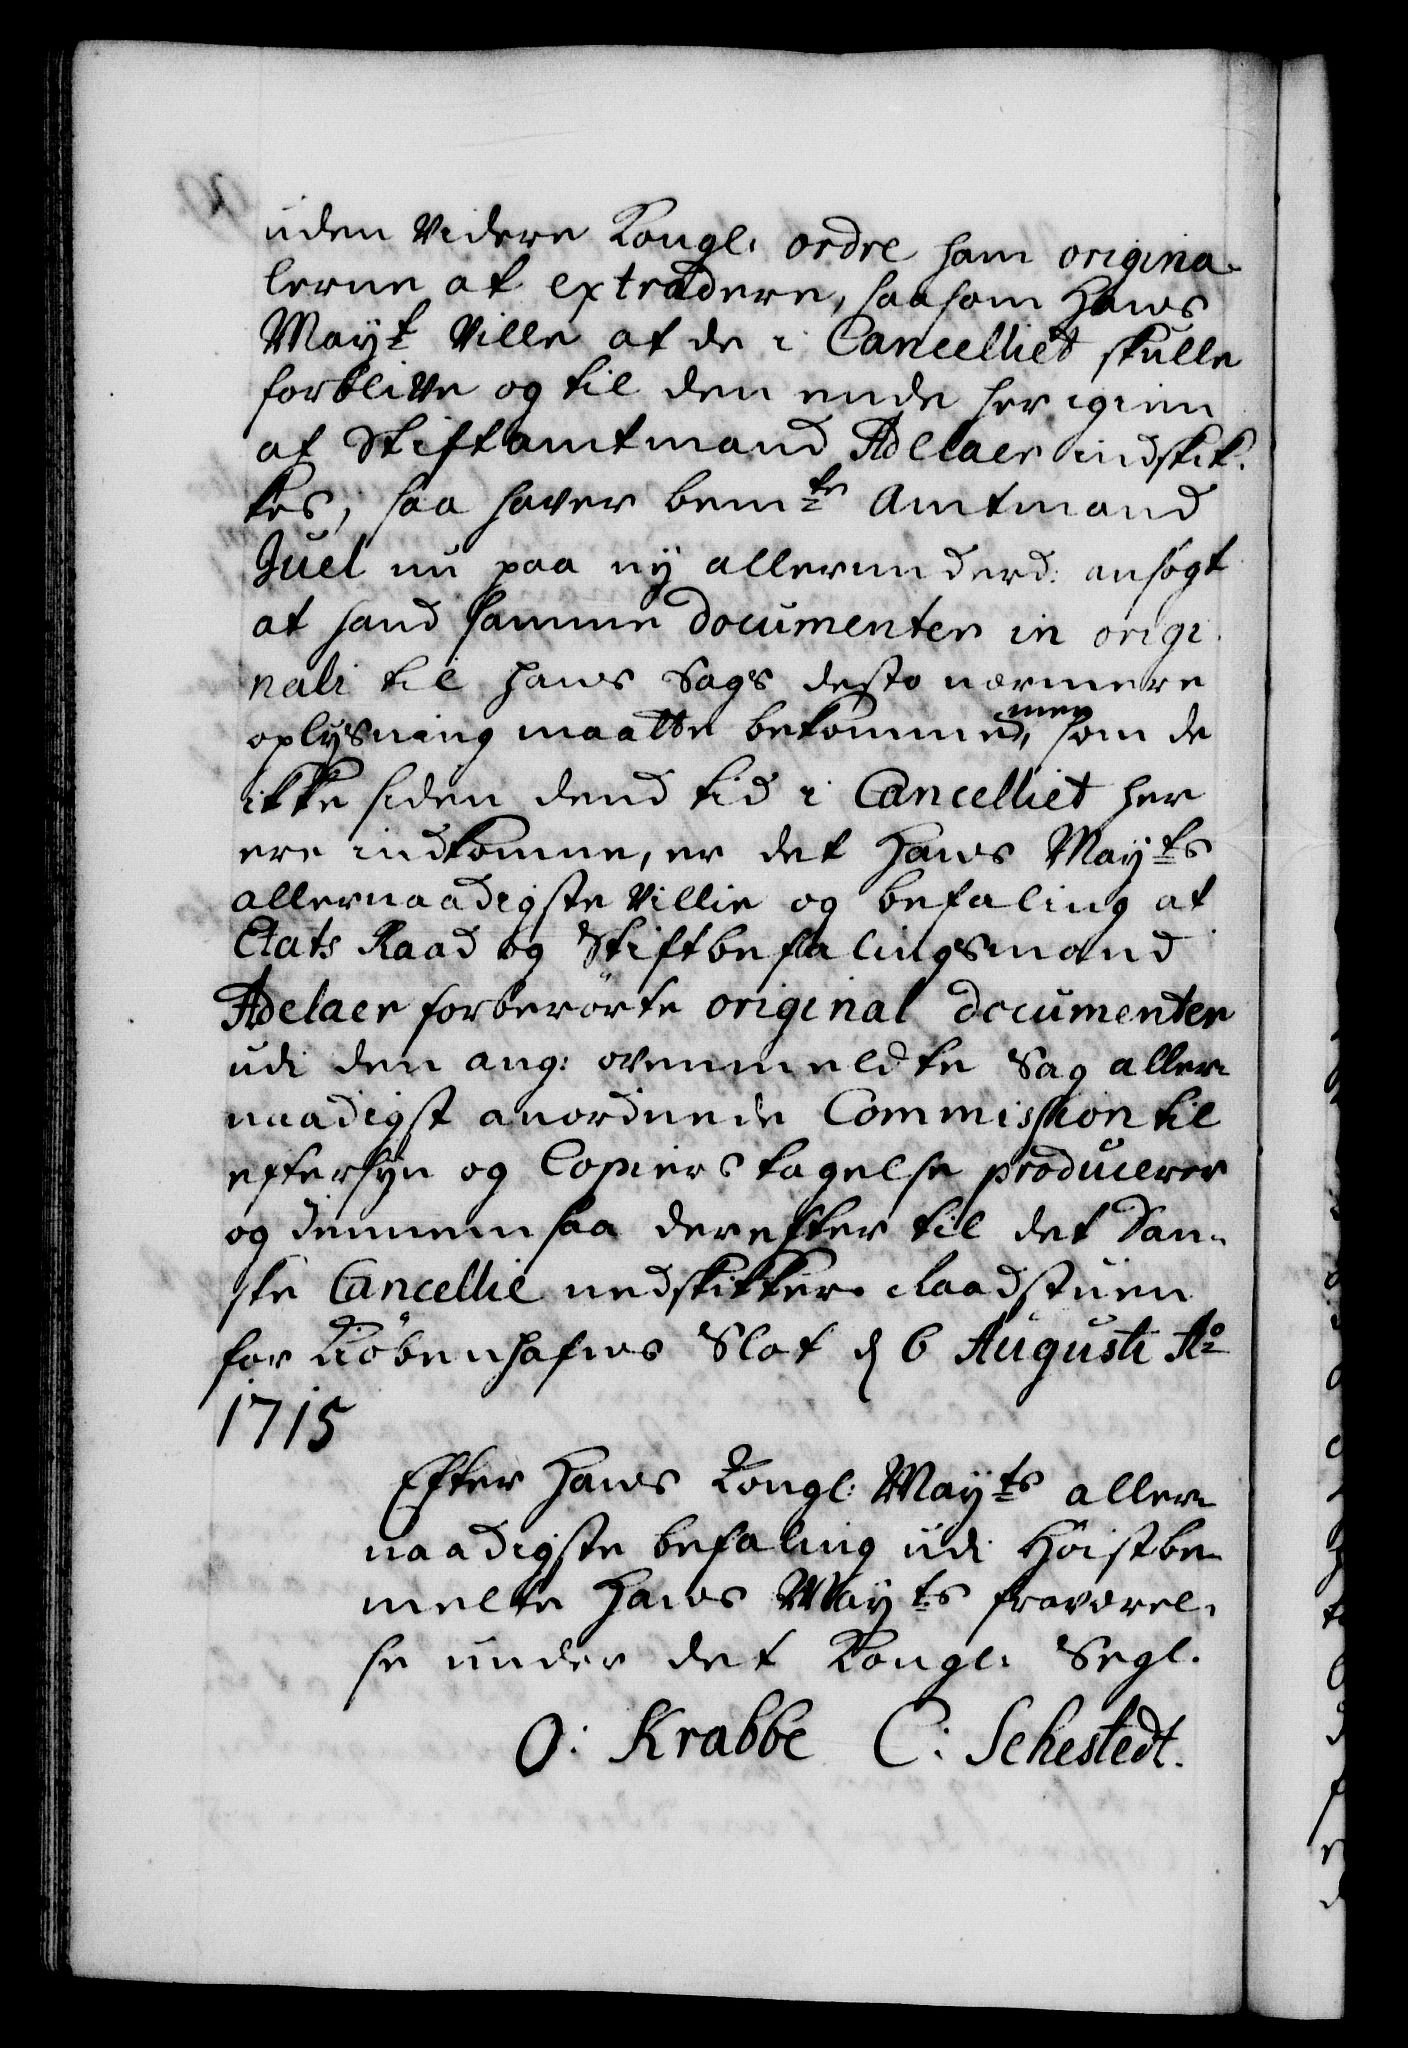 uden videre Kongl. ordre ham origina-
lerne at extradere, saasom Hans
Mayt. Ville at de i Cancelliet skulle
forblive og til den ende her igien
af Stiftamtmand Adelaer indskik-
kes, saa haver bemte Amtmand
Juel nu paa ny allerunderd: ansøgt
at hand samme documenter in origi
nali til hans Sags desto nærmere
oplysning maatte bekomme, men som de
ikke siden dend tid i Cancelliet her
ere indkomne, er det Hans Mayts
allernaadigste villie og befaling at
Etats Raad og Stiftbefalingsmand
Adelaer forberørte original documenter
udi den ang: ovenmeldte Sag aller-
naadigst anordnede Commission til
eftersyn og Copiers tagelse producerer
og dennem saa derefter til det Dan-
ske Cancellie nedskikker. Raadstuen
for Kiöbenhafns Slot d 6 Augusti Ao
1715
Efter Hans Kongl: Mayts aller-
naadigste befaling udi Høistbe-
melte Hans Mayts fraværel-
se under det Kongl: Segl.
O: Krabbe C: Sehestedt.